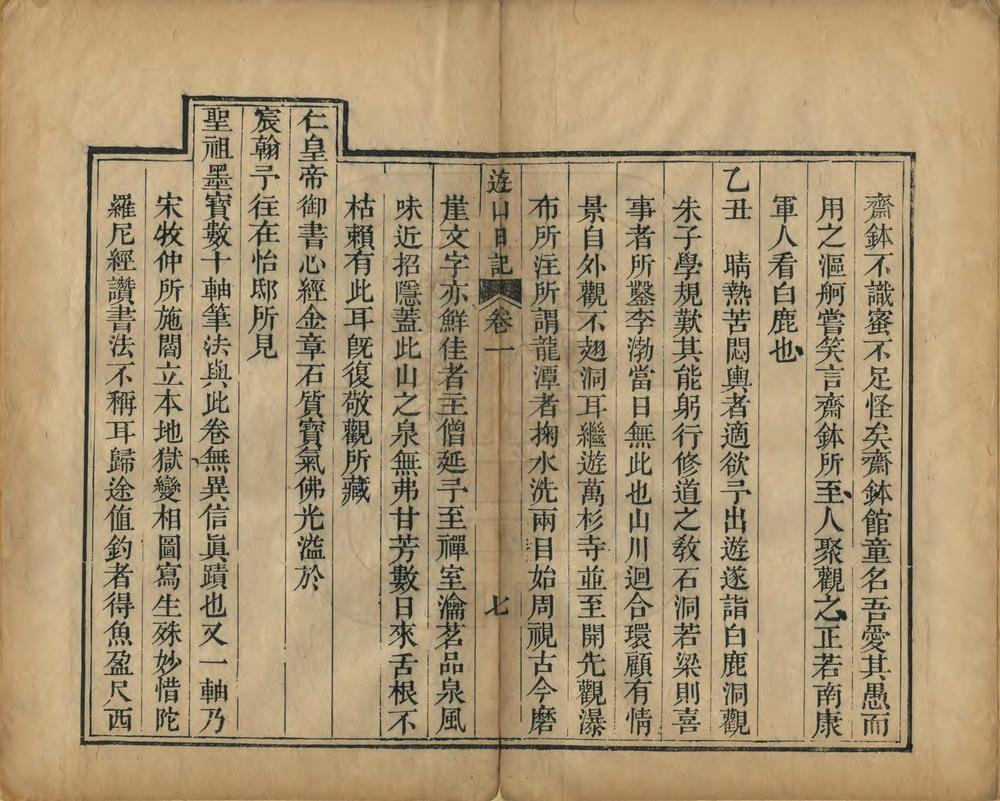 齋鉢不識蜜不足怪矣齋鉢館童名吾愛其愚而
用之漚舸嘗笑言齋鉢所至人聚觀之正若南康
軍人看白鹿也
乙丑　晴熱苦悶輿者適欲予出遊遂詣白鹿洞觀
朱子學規歎其能躬行修道之敎石洞若梁則喜
事者所鑿李渤當日無此也山川迴合環顧有情
景自外觀不翅洞耳繼遊萬杉寺並至開先觀瀑
布所注所謂龍潭者掬水洗兩目始周視古今磨
遊山日記　卷一　七
崖文字亦鮮佳者主僧延予至禪室瀹茗品泉風
味近招隱蓋此山之泉無弗甘芳數日來舌根不
枯賴有此耳旣復敬觀所藏
仁皇帝御書心經金章石質寶氣佛光溢於
宸翰予往在怡邸所見
聖祖墨寶數十軸筆法與此卷無異信眞蹟也又一軸乃
宋牧仲所施閻立本地獄變相圖寫生殊妙惜陀
羅尼經讚書法不稱耳歸途值釣者得魚盈尺西